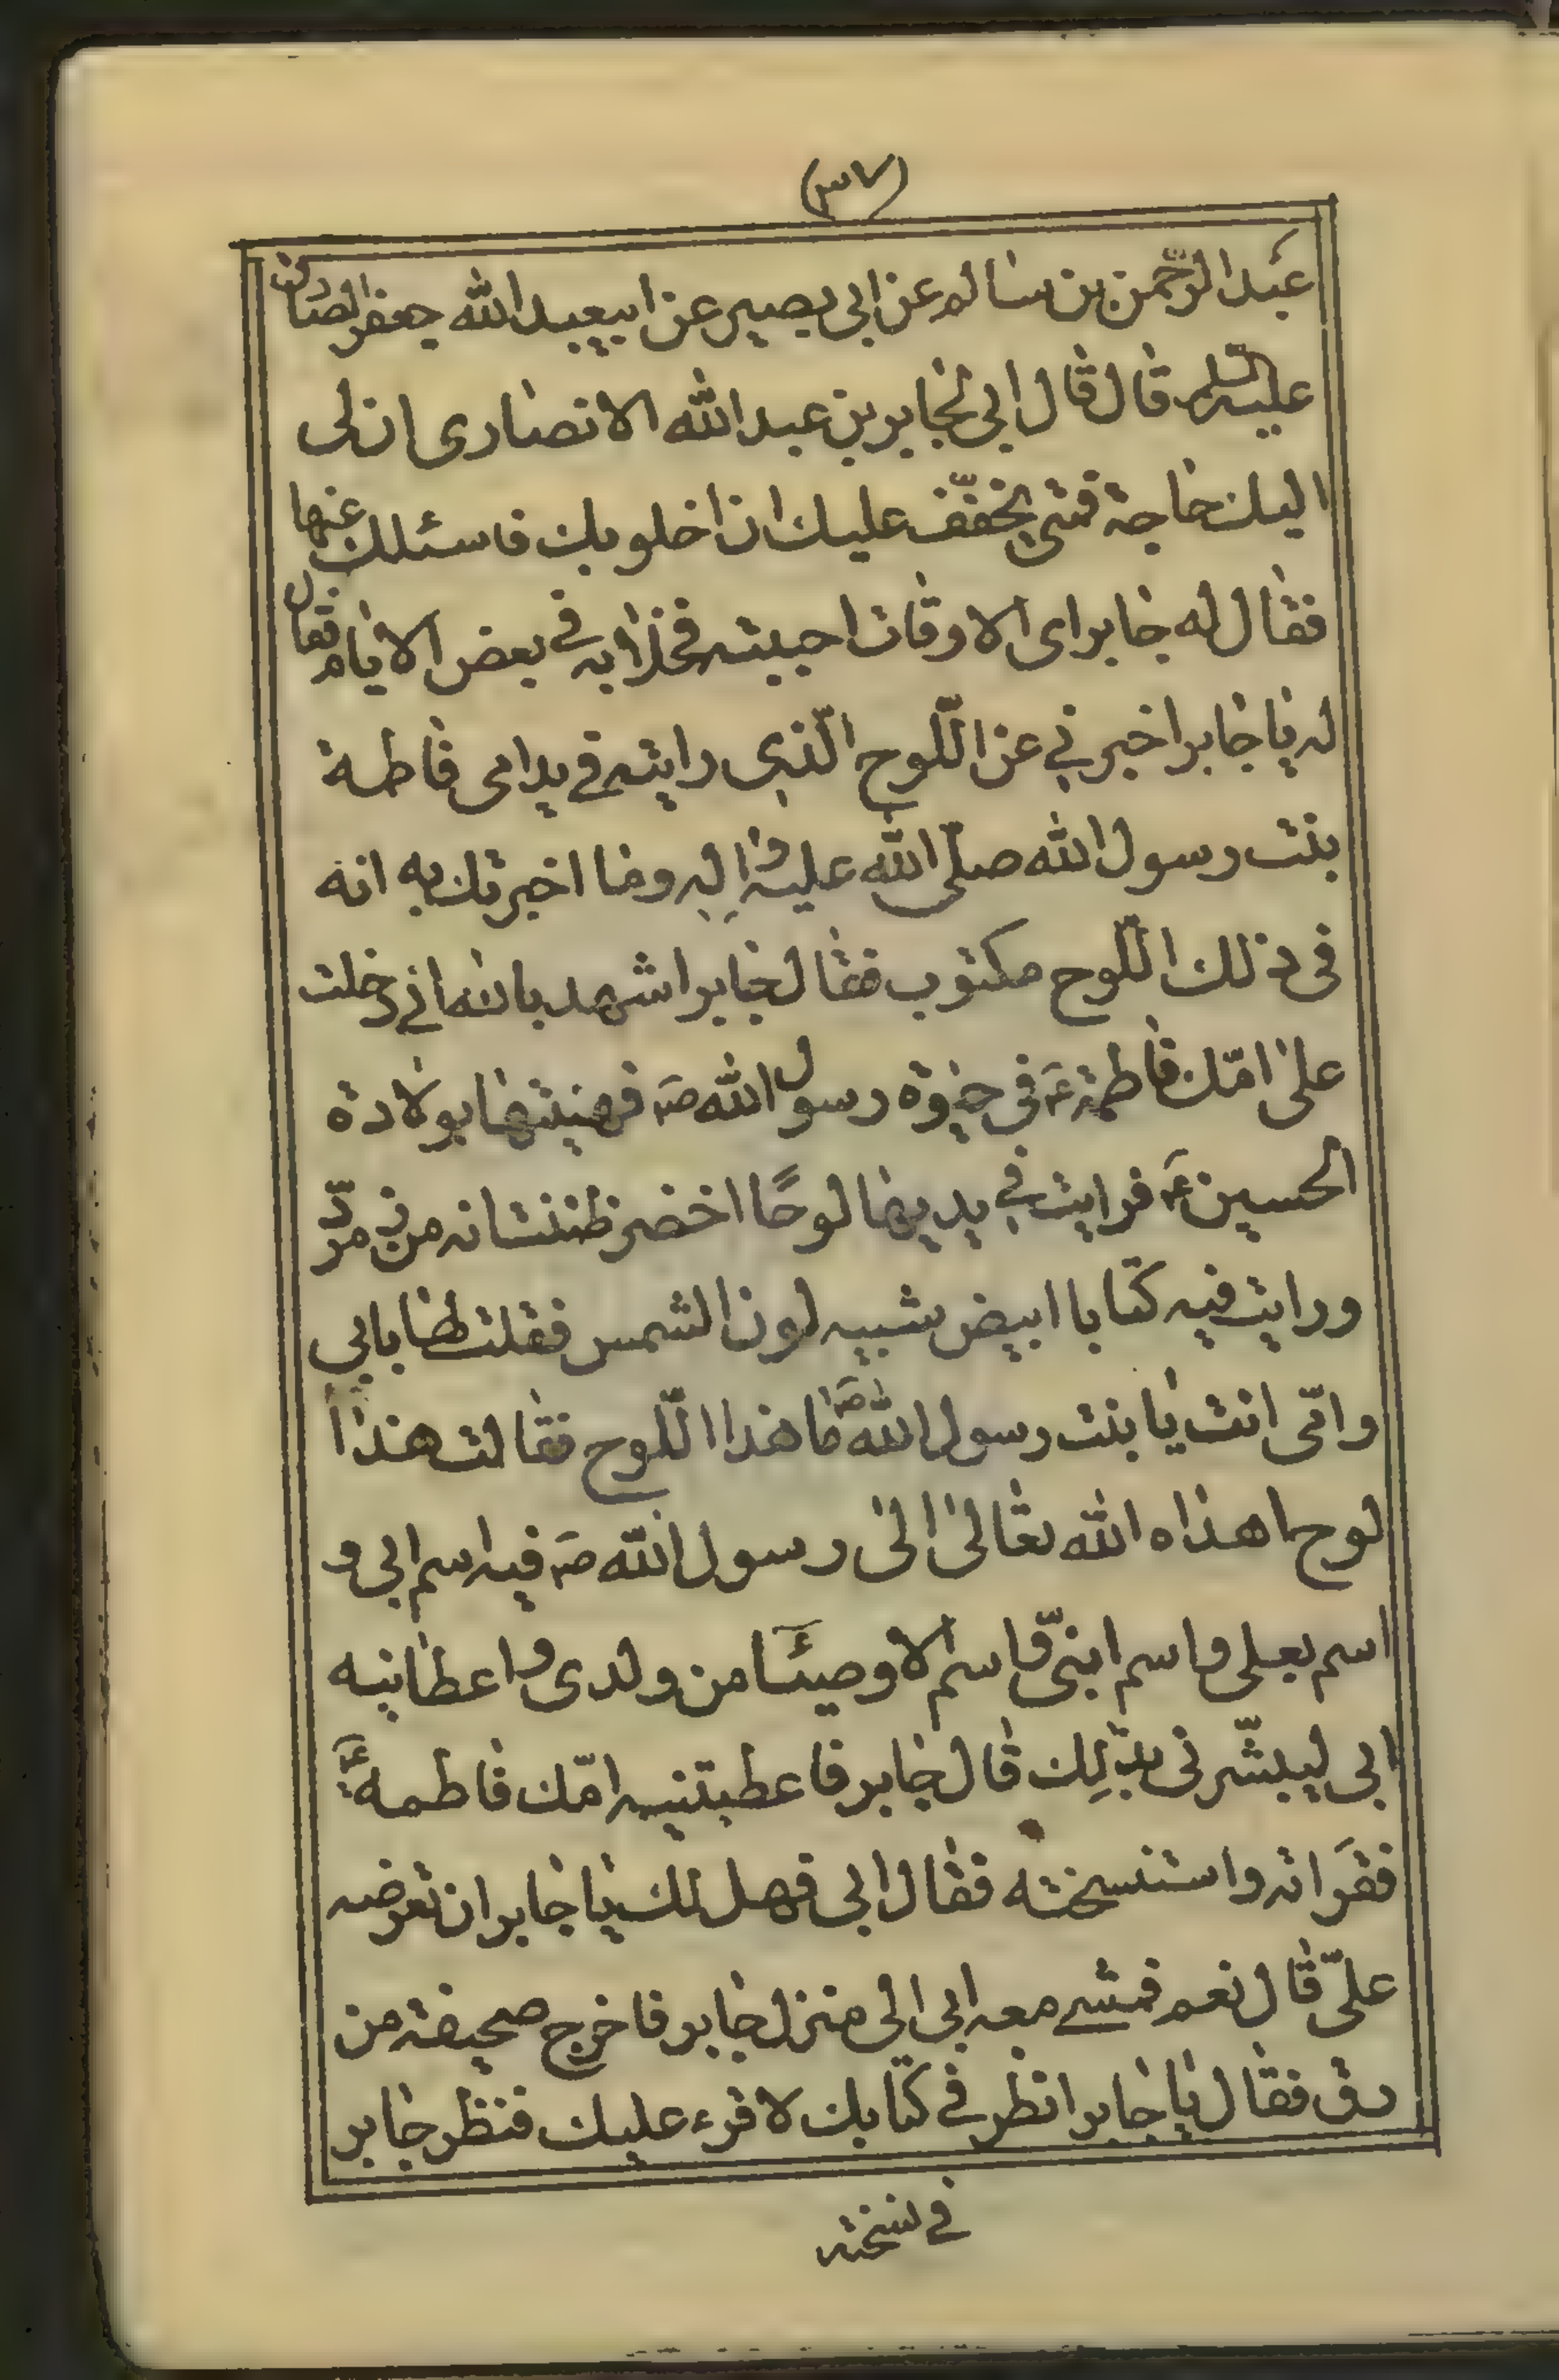 (٣٧)
عبد الرّحمن بن سالم عن ابی بصیر عن ابیعبد الله جعفر الصادق
علیه السلم قال قال ابی لجابر بن عبد الله الانصاری ان لی
الیك حاجة فمتی یخفّف علیك ان اخلو بك فاسئلك عنها
فقال له جابر ای الاوقات احببته فخلا به فی بعض الایام فقال
له یا جابر اخبرنی عن اللّوح الّذی رایته فی ید امی فاطمة
بنت رسول الله صلّی الله علیه و اله و ما اخبرتك به انه
فی ذلك اللّوح مکتوب فقال جابر اشهد بالله انی دخلت
علی امّك فاطمة ع فی حیوة رسول الله ص فهنیتها بولادة
الحسین ع فرایت فی یدیها لوحًا اخضر ظننت انه من زمرّد
و رایت فیه کتابا ابیض شبیه لون الشمس فقلت لها بابی
و امّی انت یا بنت رسول الله ص ما هذا اللّوح فقالت هذا
لوح اهداه الله تعالی الی رسول الله ص فیه اسم ابی و
اسم بعلی و اسم ابنیّ و اسم الاوصیئا من ولدی و اعطانیه
ابی لیبشّرنی بذلِك قال جابر فاعطیتنیه امّك فاطمة ع
فقرَاته و استنسخته فقال ابی فهل لك یا جابر ان تعرضه
علیّ قال نعم فمشی معه ابی الی منزل جابر فاخرج صحیفة من
رق فقال یا جابر انظر فی کتابك لاقرء علیك فنظر جابر
فی نسخته